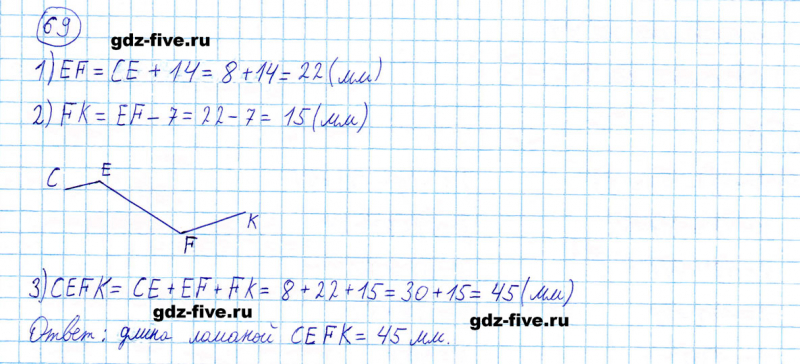 69
gdz-five.ru
1) EF = CE + 14 = 8 + 14 = 22 (мм)
2) FK = EF - 7 = 22 - 7 = 15 (мм)
C E
F K
3) CEFK = CE + EF + FK = 8 + 22 + 15 = 30 + 15 = 45 (мм)
gdz-five.ru gdz-five.ru
Ответ: длина ломаной CEFK = 45 мм.